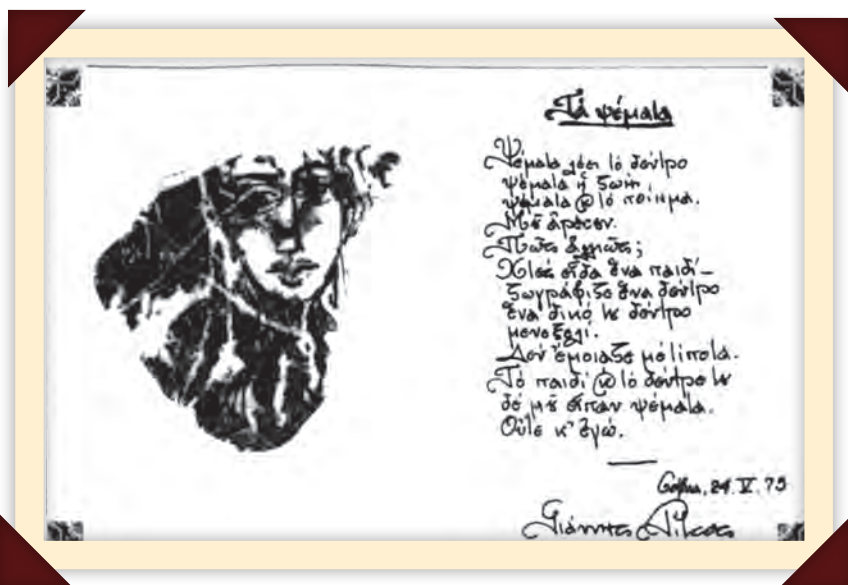 Τὰ ψέματα
Ψέματα λέει τὸ δέντρο
ψέματα ἡ ζωή,
ψέματα καὶ τὸ ποίημα.
Μοῦ ἄρεσεν.
Πῶς ἀλλιῶς;
Χτὲς εἶδα ἕνα παιδί –
ζωγράφιζε ἕνα δέντρο
ἕνα δικό του δέντρο
μενεξελί.
Δὲν ἔμοιαζε μὲ τίποτα.
Τὸ παιδὶ καὶ τὸ δέντρο του
δὲ μοῦ εἶπαν ψέματα.
Οὔτε κ' ἐγώ.
24.V.75
Γιάννης Ρίτσος